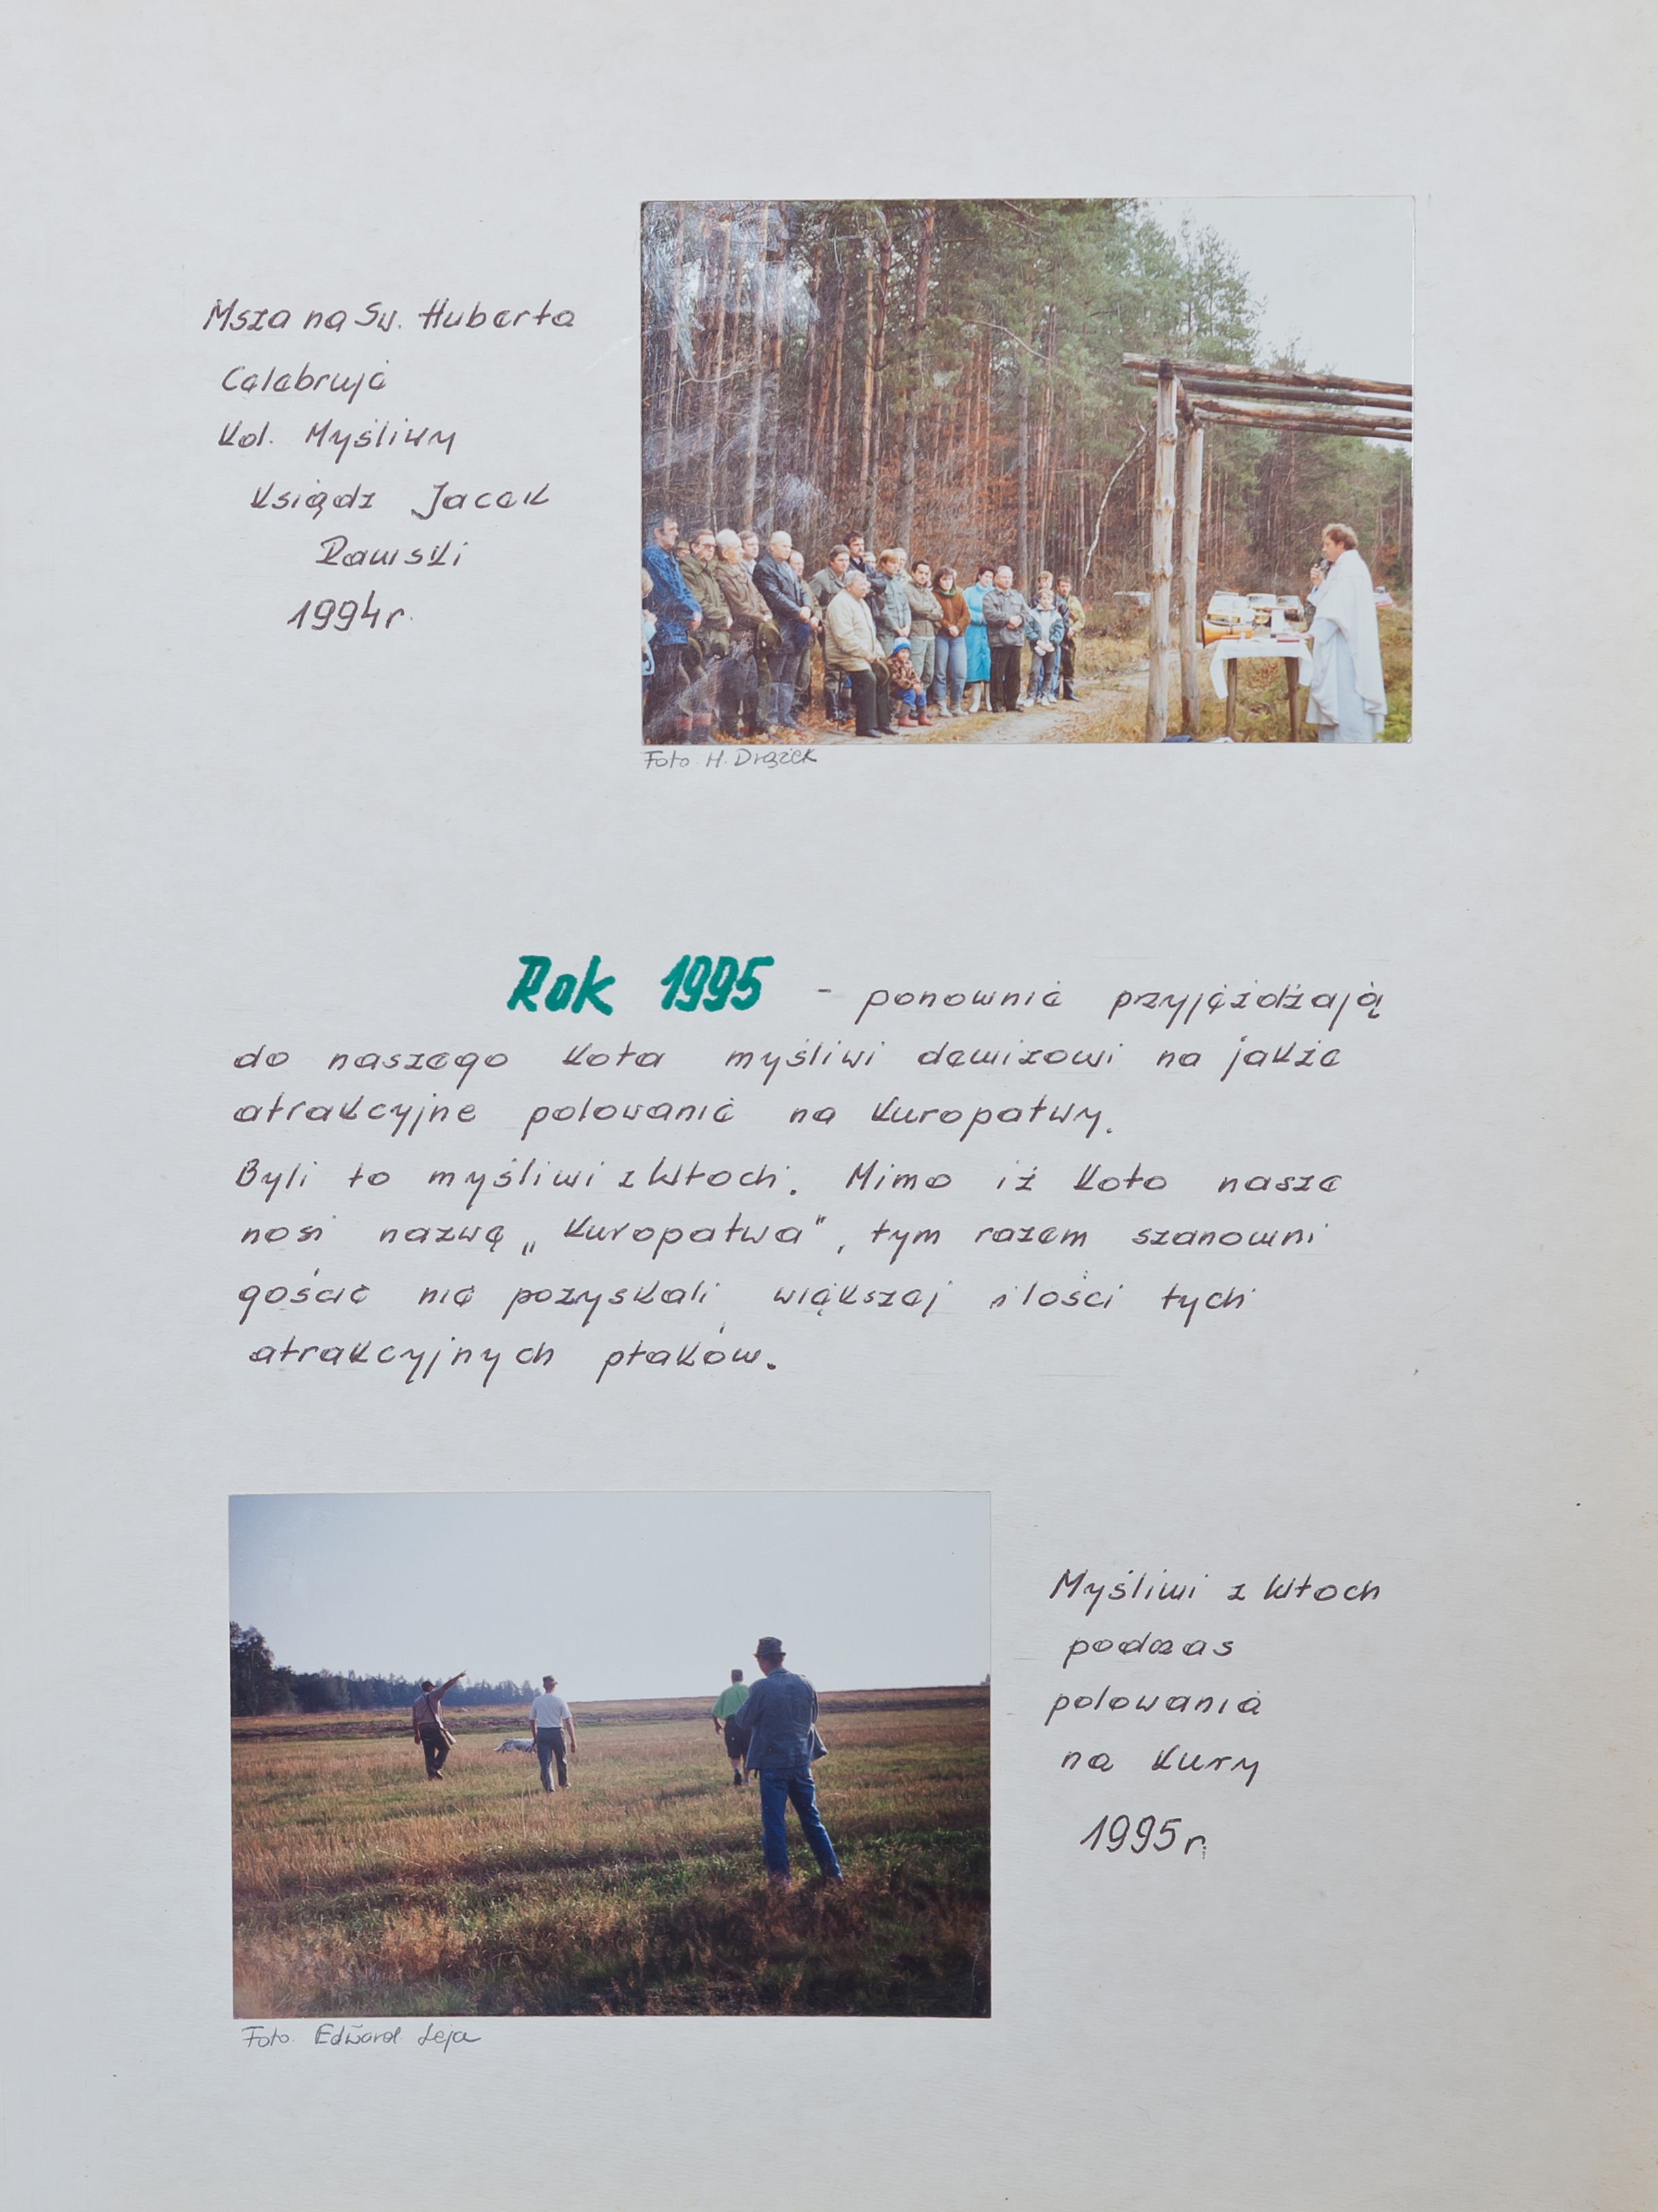 Msza na Św. Huberta
Celebruje
Kol. Myśliwy
Ksiądz Jacek
Rawski
1994r.
Foto H. Drążek
Rok 1995 - ponownie przyjeżdżają
do naszego Koła myśliwi dewizowi na jakże
atrakcyjne polowanie na Kuropatwy.
Byli to myśliwi z Włoch. Mimo iż Koło nasze
nosi nazwę „Kuropatwa", tym razem szanowni
goście nie pozyskali większej ilości tych
atrakcyjnych ptaków.
Myśliwi z Włoch
podczas
polowania
na Kury
1995r.
Foto. Edward Leja